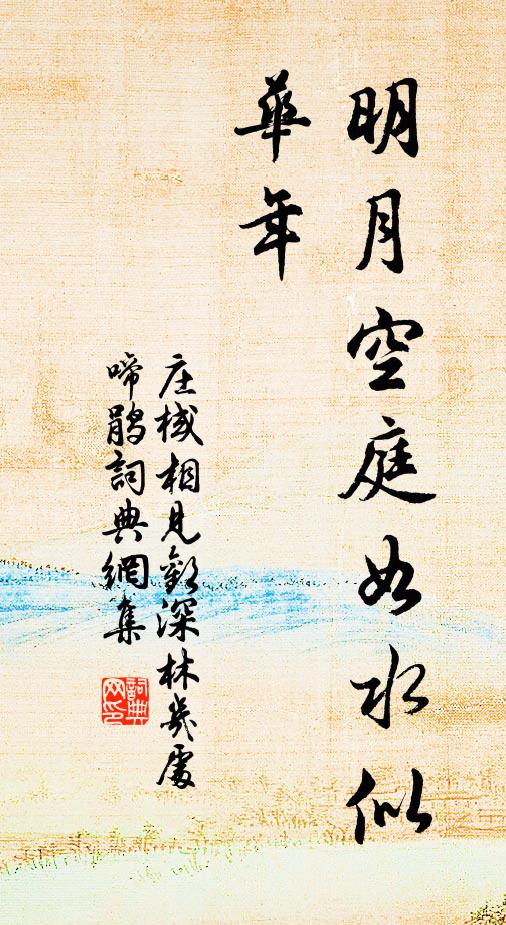 明月空庭如水似
華年
庄棫相見歡深林幾處
啼鵑詞典網集
詞典
网印